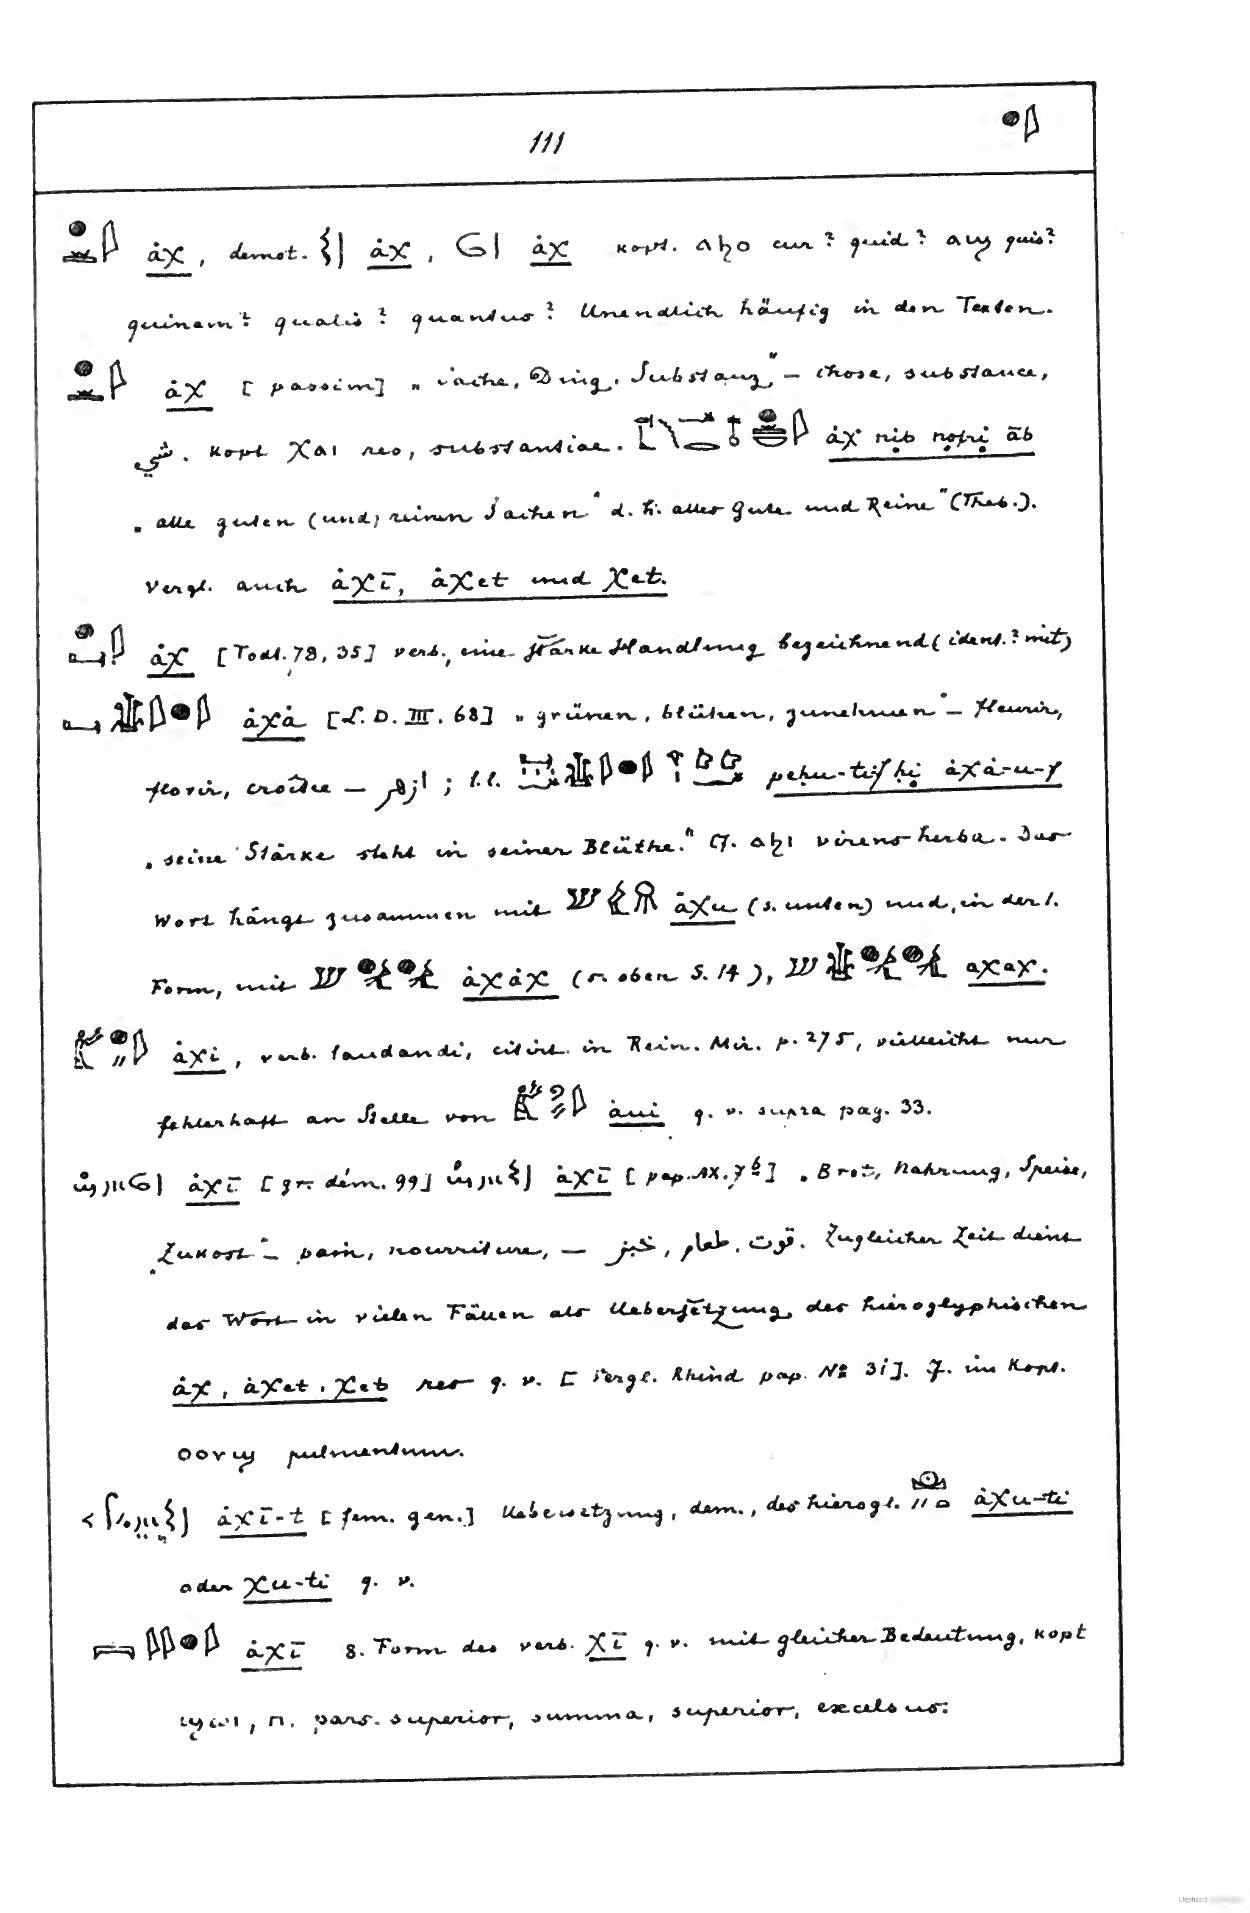 111
ȧχ, demot. ȧχ, ȧχ kopt. ⲁϩⲟ cur? quid? ⲁϣ quis?
quinam? qualis? quantus? Unendlich häufig in den Texten.
ȧχ [passim] „Sache, Ding, Substanz" – chose, substance,
شي. kopt ⲭⲁⲓ res, substantiae. ȧχ nib nofri āb
„alle guten (und) reinen Sachen" d. h. alles Gute und Reine" (Theb.).
Vergl. auch ȧχī, ȧχet und χet.
ȧχ [Todt. 78, 35] verb., eine starke Handlung bezeichnend (ident.? mit)
ȧχȧ [L. D. III. 68] „grünen, blühen, zunehmen" – fleurir,
florir, croître – ازهر ; l. l. pehu-ti-f hi ȧχȧ-u-f
„seine Stärke steht in seiner Blüthe." Cf. ⲁϩⲓ virens herba. Das
Wort hängt zusammen mit ȧχu (s. unten) und, in der l.
Form, mit ȧχȧχ (s. oben S. 14), aχaχ.
ȧχi, verb. laudandi, citirt in Rein. Mir. p. 275, vielleicht nur
fehlerhaft an Stelle von ȧui q. v. supra pag. 33.
ȧχī [gr. dém. 99] ȧχī [pap. 7 b] „Brot, Nahrung, Speise,
Zukost" – pain, nourriture, – قوت, طعام, خبز. Zugleicher Zeit dient
das Wort in vielen Fällen als Uebersetzung des hieroglyphischen
ȧχ, ȧχet, χet res q. v. [Vergl. Rhind pap. № 31]. Cf. im Kopt.
ⲟⲟⲩϣ pulmentum.
ȧχī-t [fem. gen.] Uebersetzung, dem., des hierogl. ȧχu-ti
oder χu-ti q. v.
ȧχī 8. Form des verb. χī q. v. mit gleicher Bedeutung, kopt
ϣⲱⲓ, ⲡ. pars superior, summa, superior, excelsus.